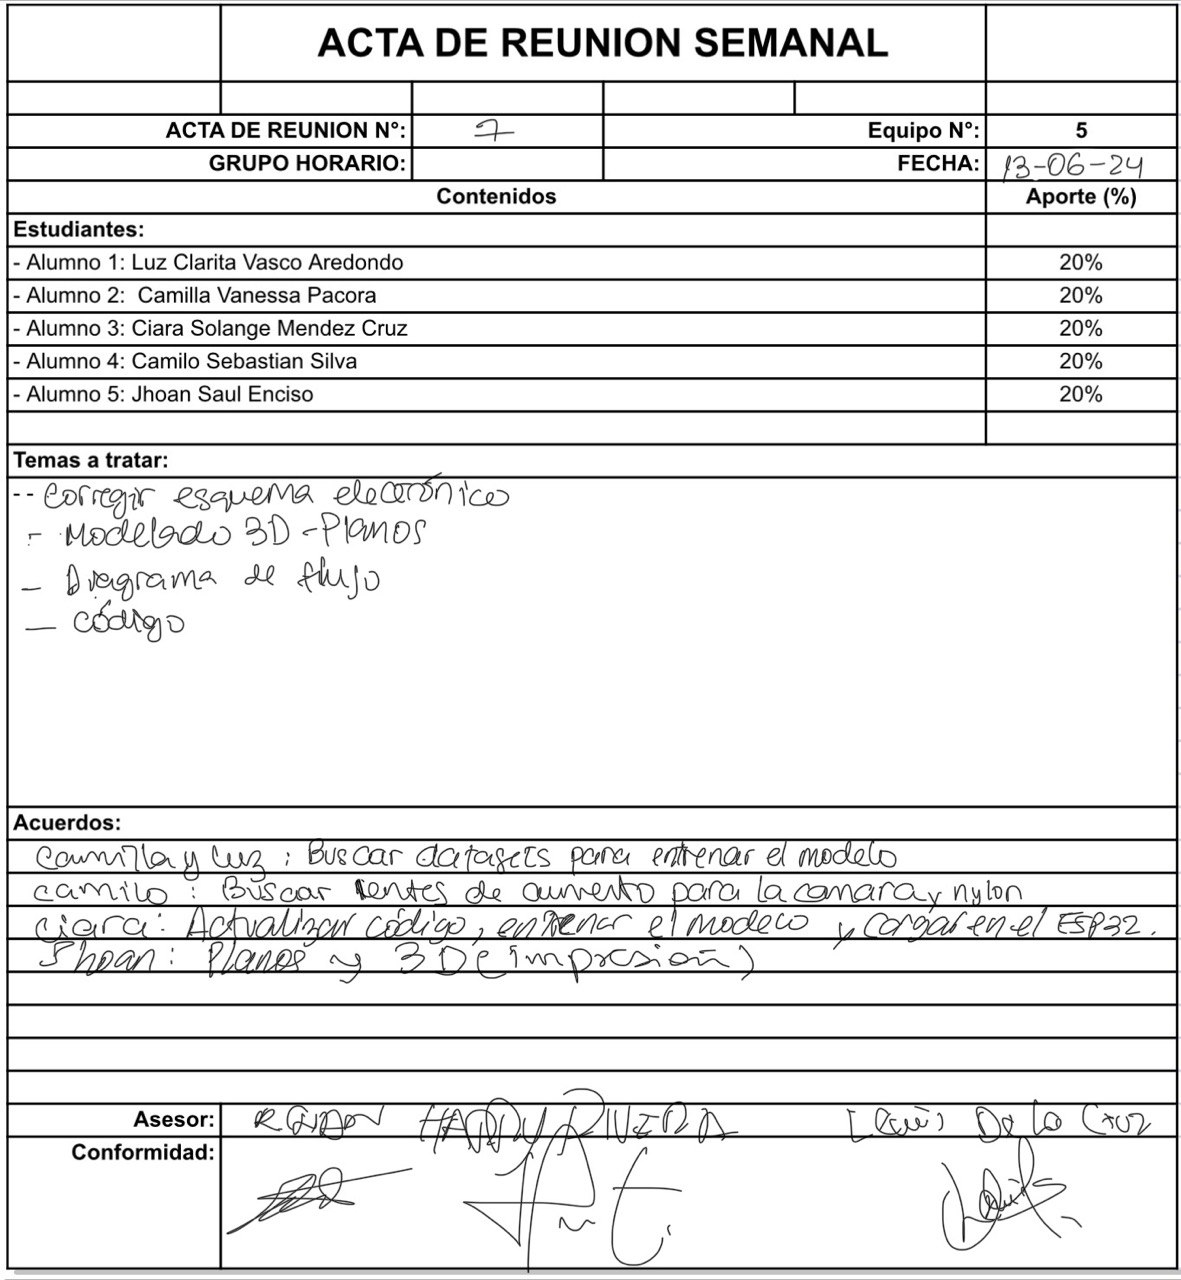 ACTA DE REUNION SEMANAL
ACTA DE REUNION N°: 7 Equipo N°: 5
GRUPO HORARIO: FECHA: 13-06-24
Contenidos Aporte (%)
Estudiantes:
- Alumno 1: Luz Clarita Vasco Aredondo 20%
- Alumno 2: Camilla Vanessa Pacora 20%
- Alumno 3: Ciara Solange Mendez Cruz 20%
- Alumno 4: Camilo Sebastian Silva 20%
- Alumno 5: Jhoan Saul Enciso 20%
Temas a tratar:
-- Corregir esquema electrónico
- Modelado 3D - Planos
- Diagrama de flujo
- Código
Acuerdos:
Camilla y Luz : Buscar datasets para entrenar el modelo
Camilo : Buscar lentes de aumento para la camara y nylon
Ciara: Actualizar código, entrenar el modelo y cargar en el ESP32.
Jhoan: Planos y 3D (impresión)
Asesor: HARRY RIVERA De la Cruz
Conformidad: